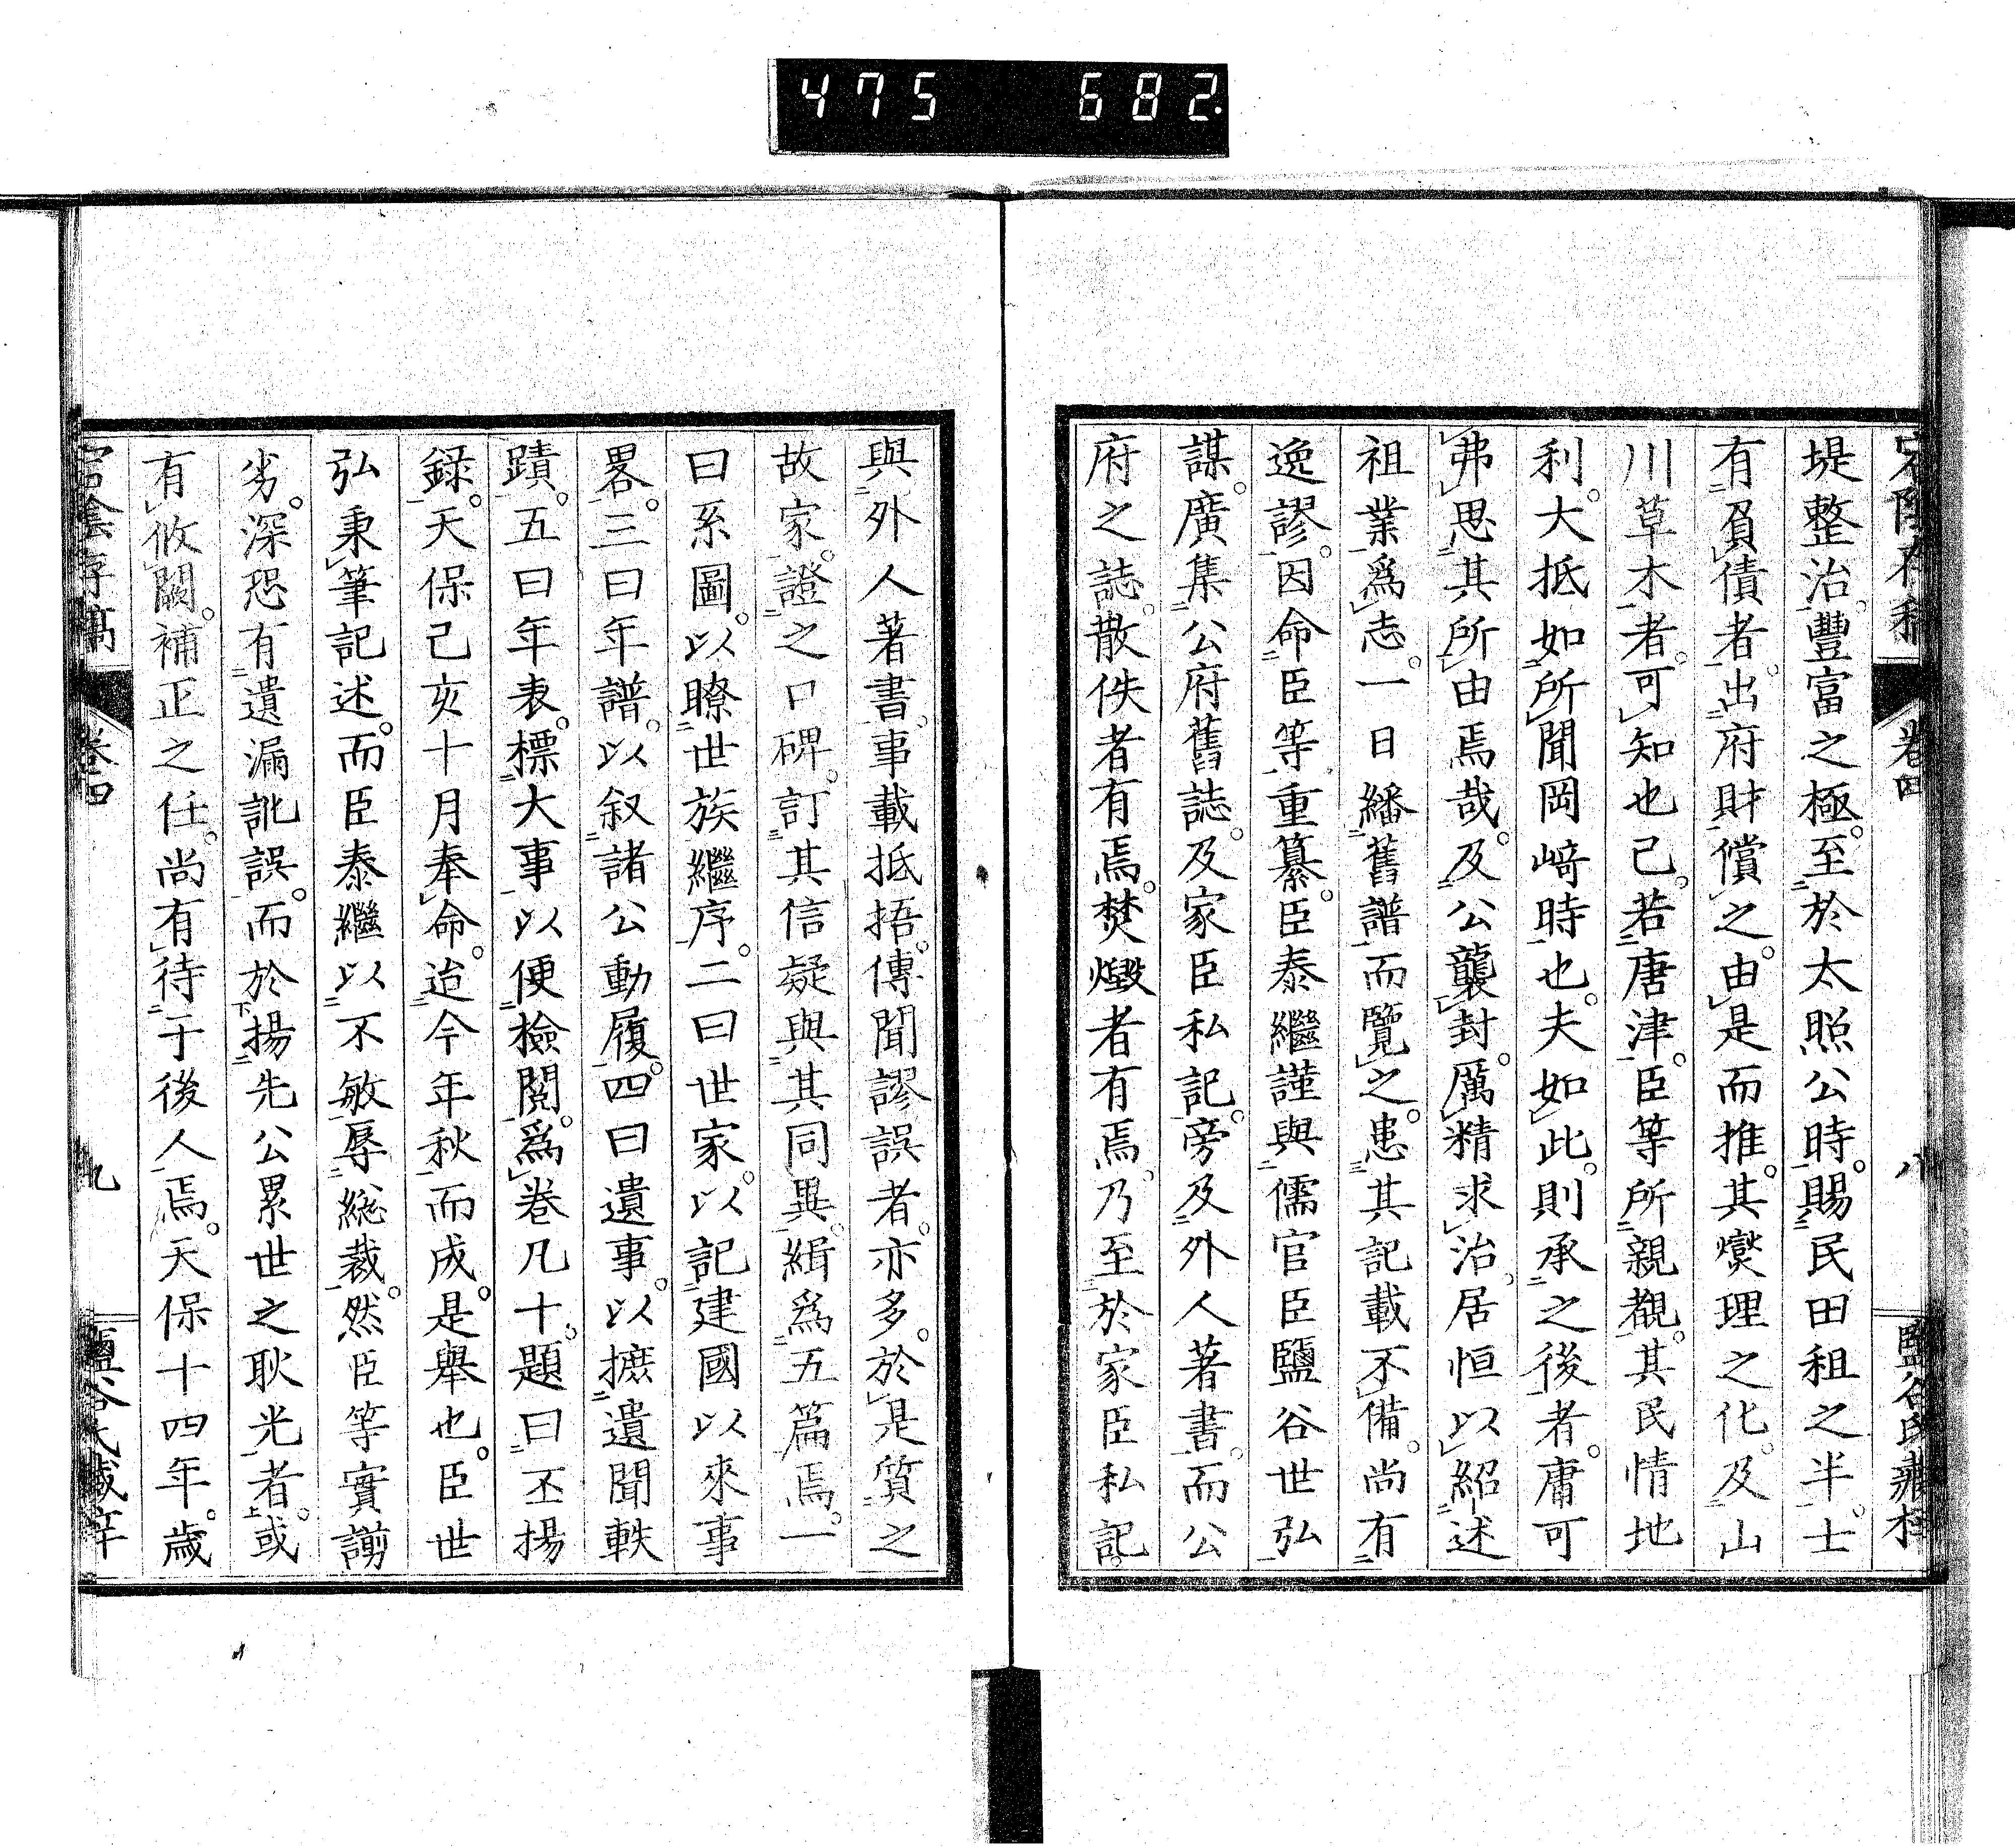 475 682
卷四
八
鹽谷氏藏梓
堤整治。豐富之極。至於太照公時。賜民田租之半。士
有負債者。出府財償之。由是而推。其爕理之化。及山
川草木者。可知也已。若唐津。臣等所親覩。其民情地
利。大抵如所聞岡﨑時也。夫如此。則承之後者。庸可
弗思其所由焉哉。及公襲封。厲精求治。居恒以紹述
祖業爲志。一日繙舊譜而覽之。患其記載不備。尚有
逸謬。因命臣等重纂。臣泰繼謹與儒官臣鹽谷世弘
謀。廣集公府舊誌。及家臣私記。旁及外人著書。而公
府之誌。散佚者有焉。焚燬者有焉。乃至於家臣私記。
與外人著書。事載抵捂。傳聞謬誤者。亦多。於是質之
故家。證之口碑。訂其信疑與其同異。緝爲五篇焉。一
曰系圖。以瞭世族繼序。二曰世家。以記建國以來事
畧。三曰年譜。以叙諸公動履。四曰遺事。以摭遺聞軼
蹟。五曰年表。標大事以便檢閲。爲卷凡十。題曰丕揚
録。天保己亥十月奉命。迨今年秋而成。是舉也。臣世
弘秉筆記述。而臣泰繼以不敏辱總裁。然臣等實謭
劣。深恐有遺漏訛誤。而於揚先公累世之耿光者。或
有攸闕。補正之任。尚有待于後人焉。天保十四年。歳
宕陰存稿
卷四
九
鹽谷氏藏梓